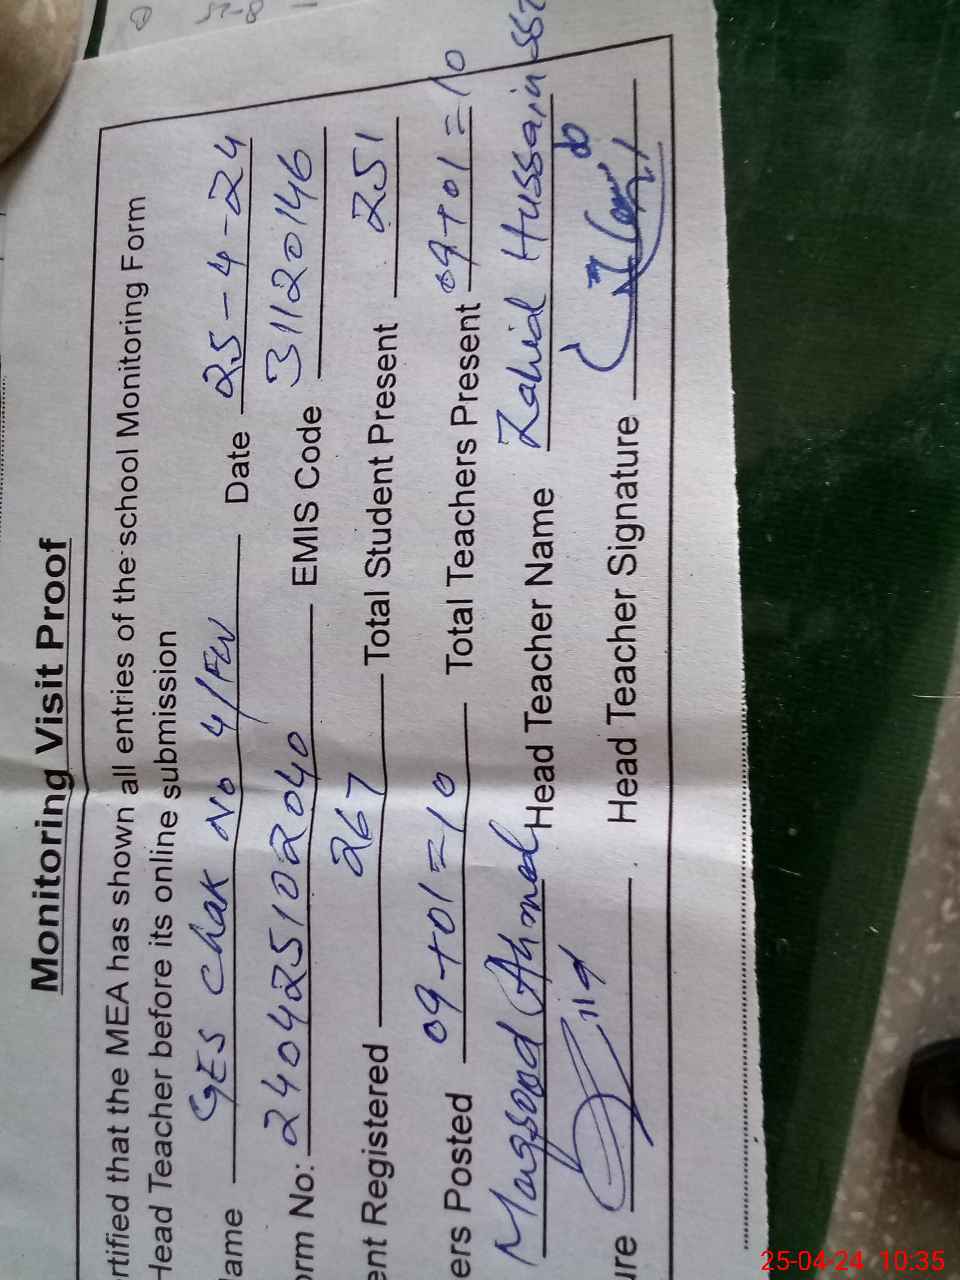 Monitoring Visit Proof
rtified that the MEA has shown all entries of the school Monitoring Form
Head Teacher before its online submission
Name GES Chak No 4/FW Date 25-4-24
orm No: 24042510 2040 EMIS Code 31120146
ent Registered 267 Total Student Present 251
ers Posted 09+01=10 Total Teachers Present 09+01=10
Maqsood Ahmad Head Teacher Name Zahid Hussain SST
ure Head Teacher Signature
25-04-24 10:35